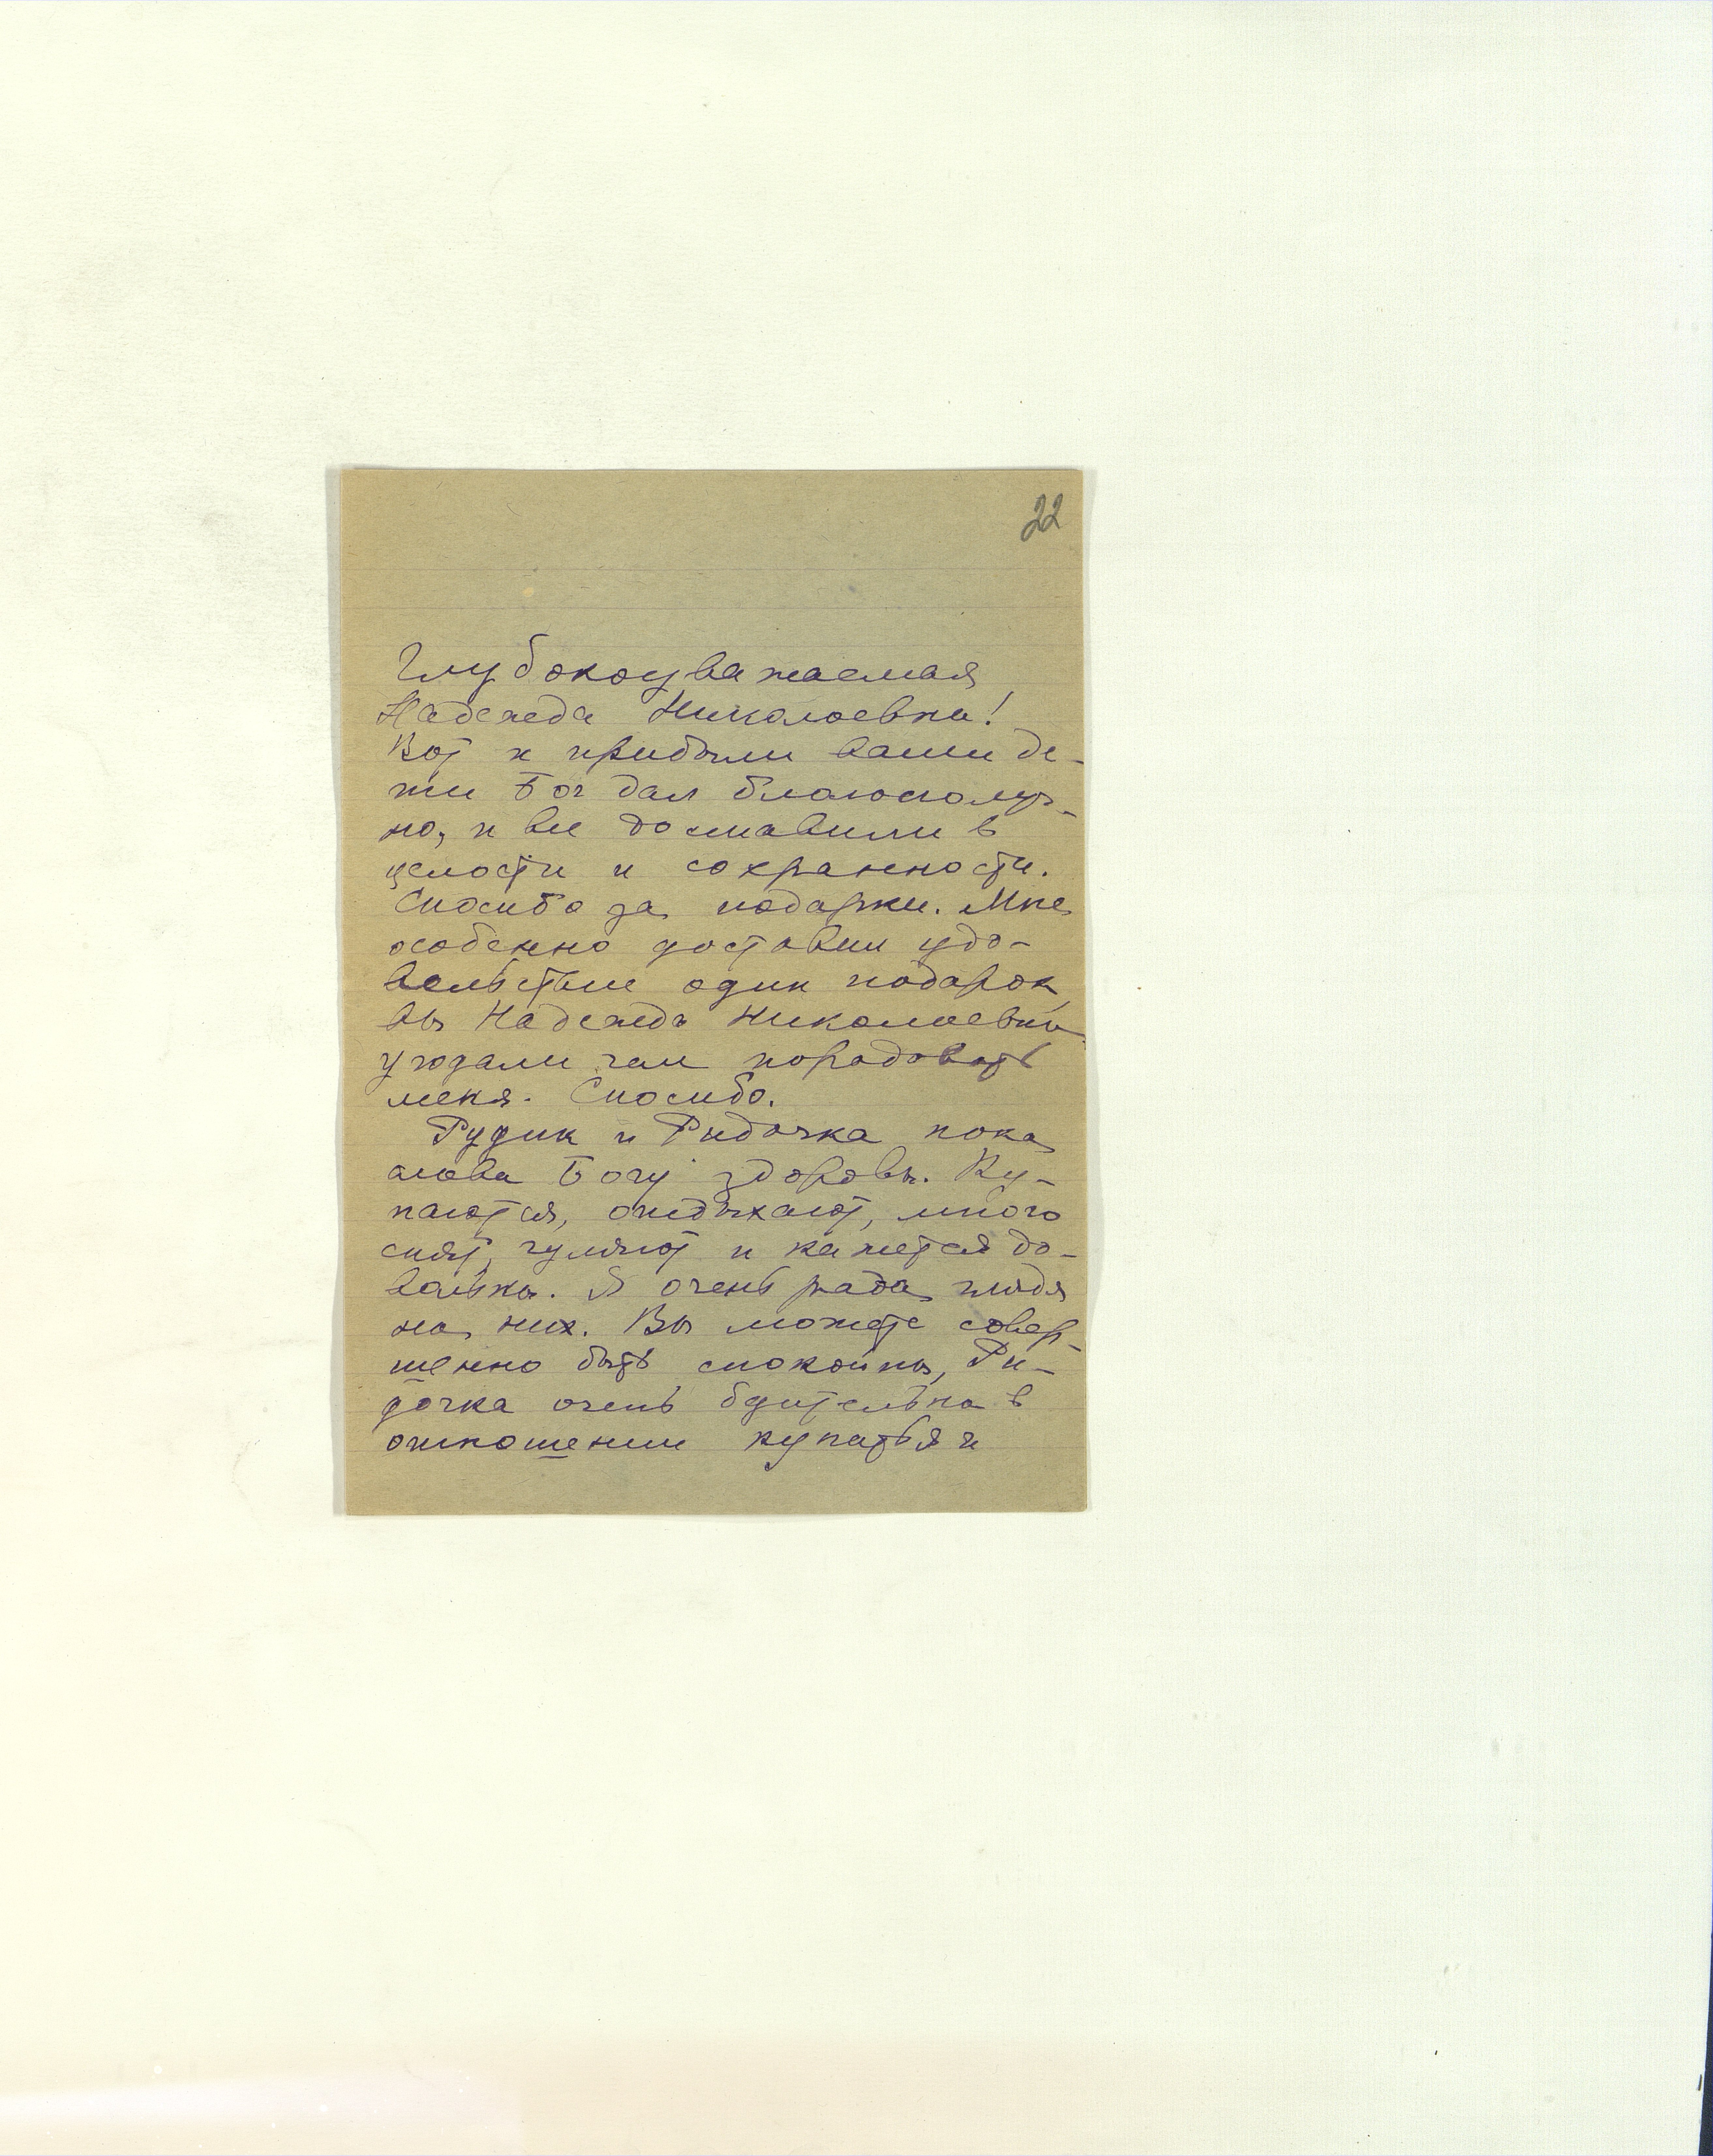 22
Глубокоуважаемая
Надежда Николаевна!
Вот и прибыли ваши де-
ти Бог дал благополуч-
но, и все доставили в
целости и сохранности.
Спасибо за подарки. Мне
особенно доставил удо-
вольствие один подарок,
вы Надежда Николаевна
угадали чем порадовать
меня. Спасибо.
Рудик и Ридочка пока
слава Богу здоровы. Ку-
паются, отдыхают, много
спят, гуляют и кажется до-
вольны. Я очень рада глядя
на них. Вы можете совер-
шенно быть спокойны, Ри-
дочка очень бдительна в
отношении купаться и